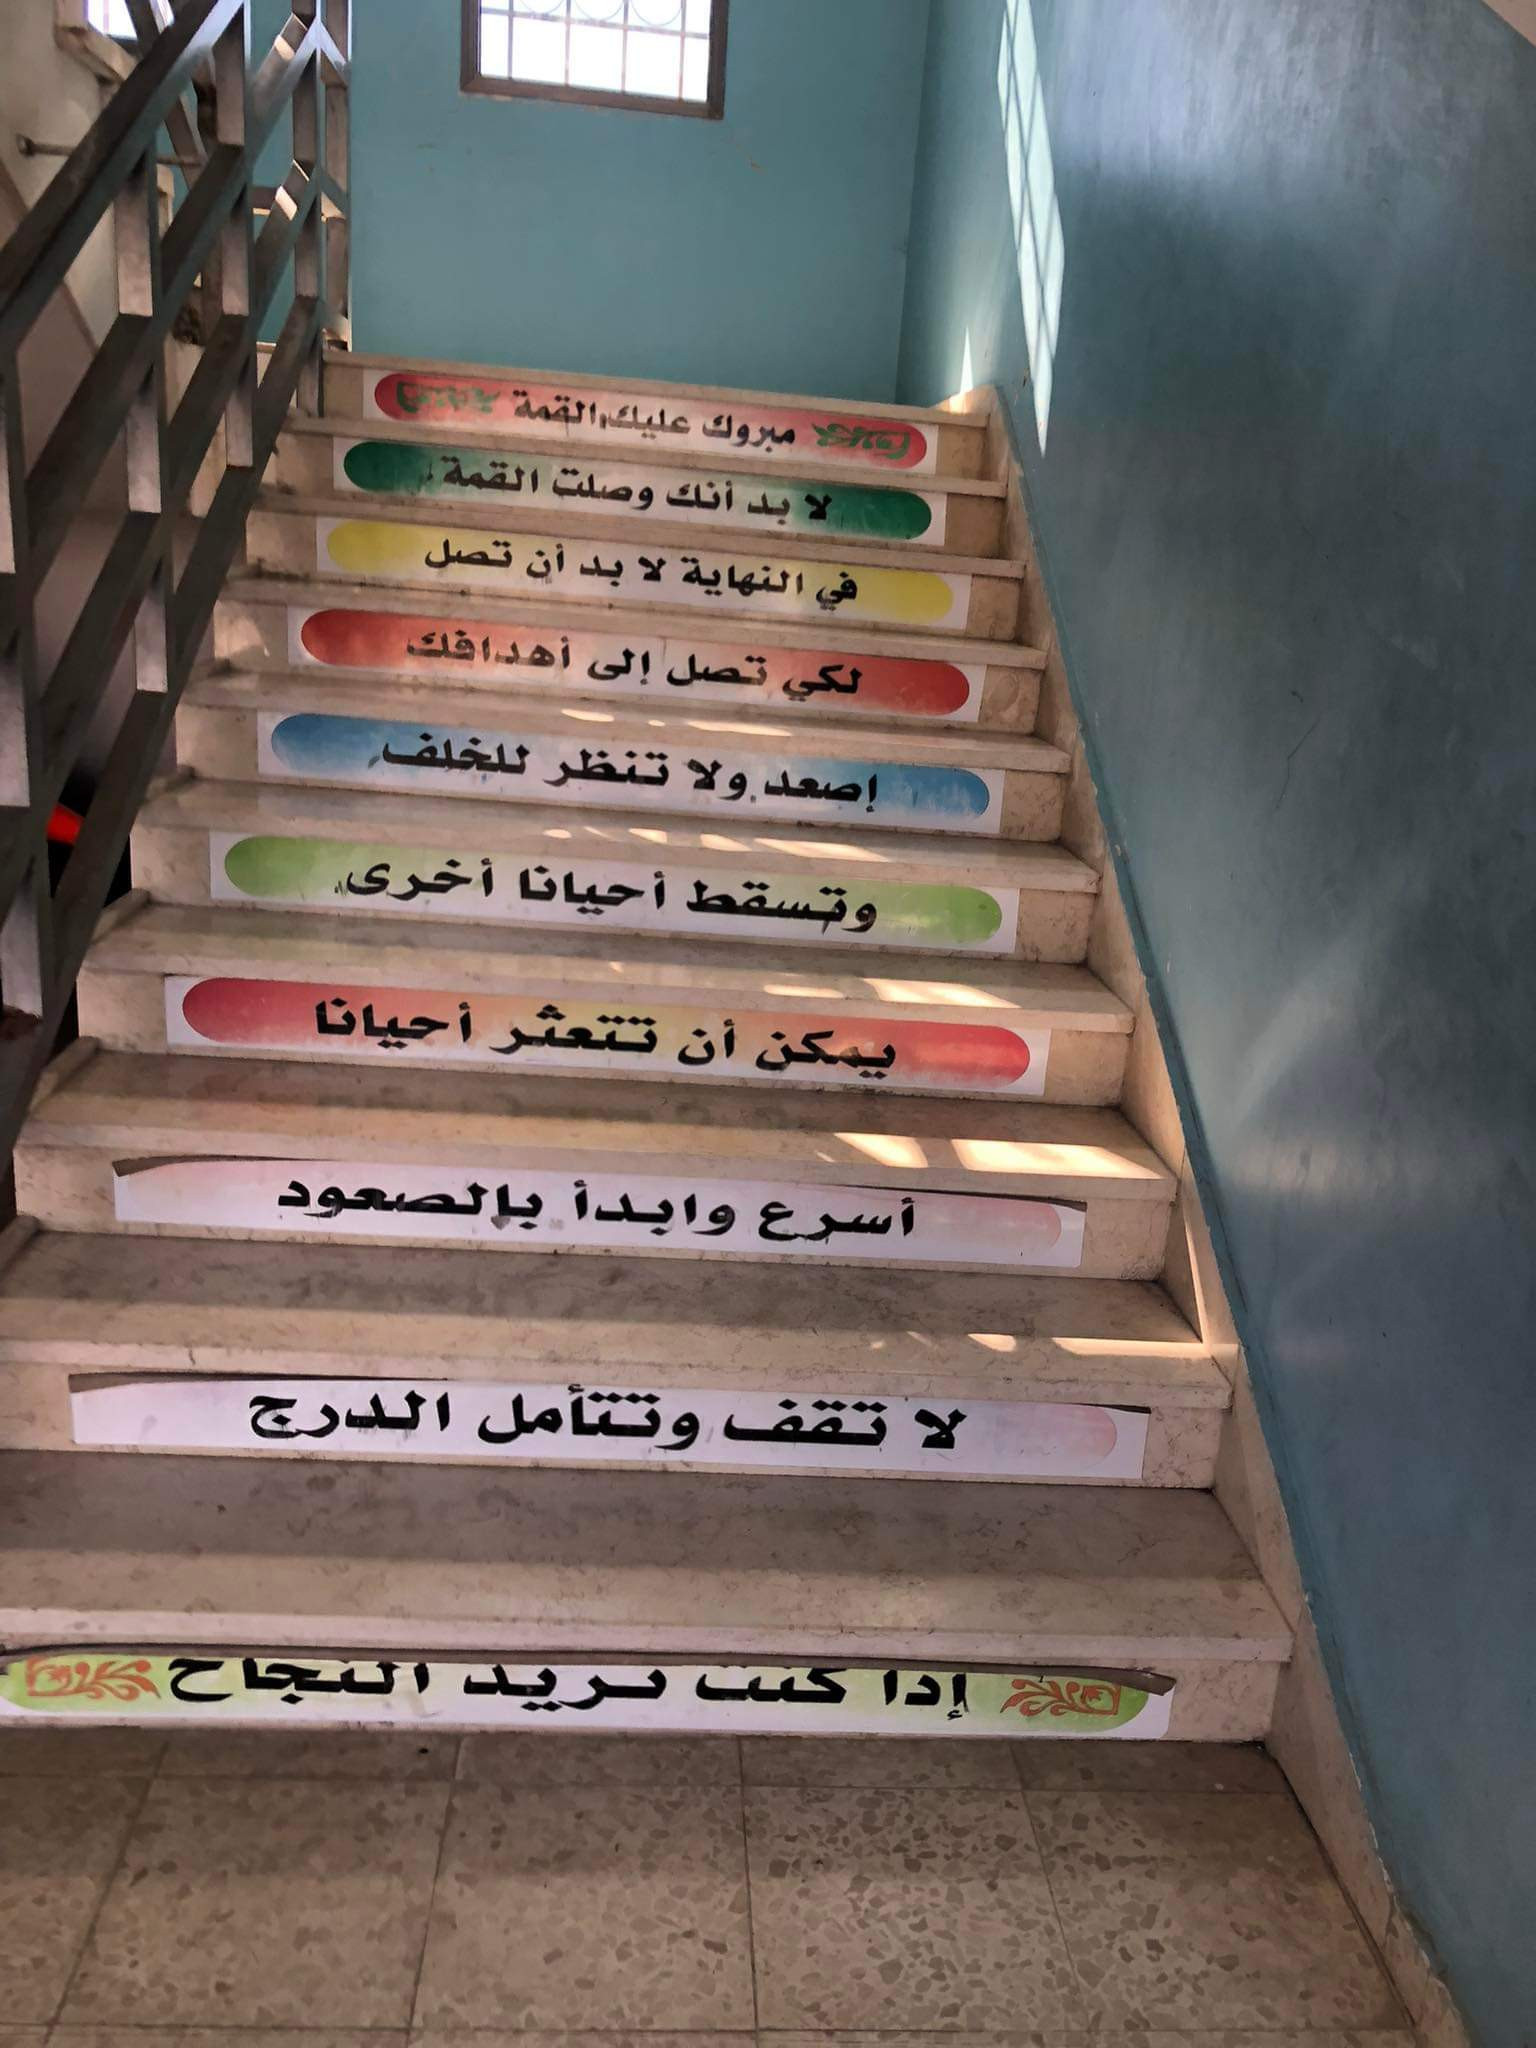 مبروك عليك القمة
لا بد أنك وصلت القمة
في النهاية لا بد أن تصل
لكي تصل إلى أهدافك
إصعد ولا تنظر للخلف
وتسقط أحيانا أخرى
يمكن أن تتعثر أحيانا
أسرع وابدأ بالصعود
لا تقف وتتأمل الدرج
إذا كنت تريد النجاح